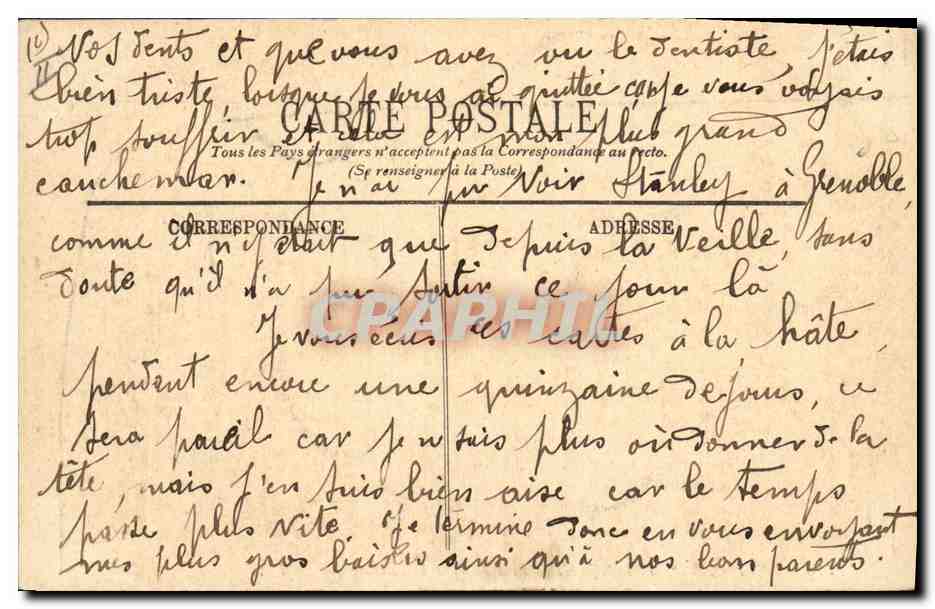 Vos dents et que vous avez vu le dentiste, j'étais
bien triste, lorsque je vous ai quittée car je vous voyais
CARTE POSTALE
trop souffrir et cela est mon plus grand
Tous les Pays étrangers n'acceptent pas la Correspondance au recto.
(Se renseigner à la Poste)
cauchemar. Je n'ai pu voir Stanley à Grenoble,
CORRESPONDANCE ADRESSE
comme il n'y était que depuis la veille, sans
doute qu'il n'a pu sortir ce jour là
CPAPHIL
Je vous écris ces cartes à la hâte,
pendant encore une quinzaine de jours, ce
sera pareil car je n sais plus où donner de la
tête, mais j'en suis bien aise car le temps
passe plus vite. Je termine donc en vous envoyant
mes plus gros baisers ainsi qu'à nos bons parents.